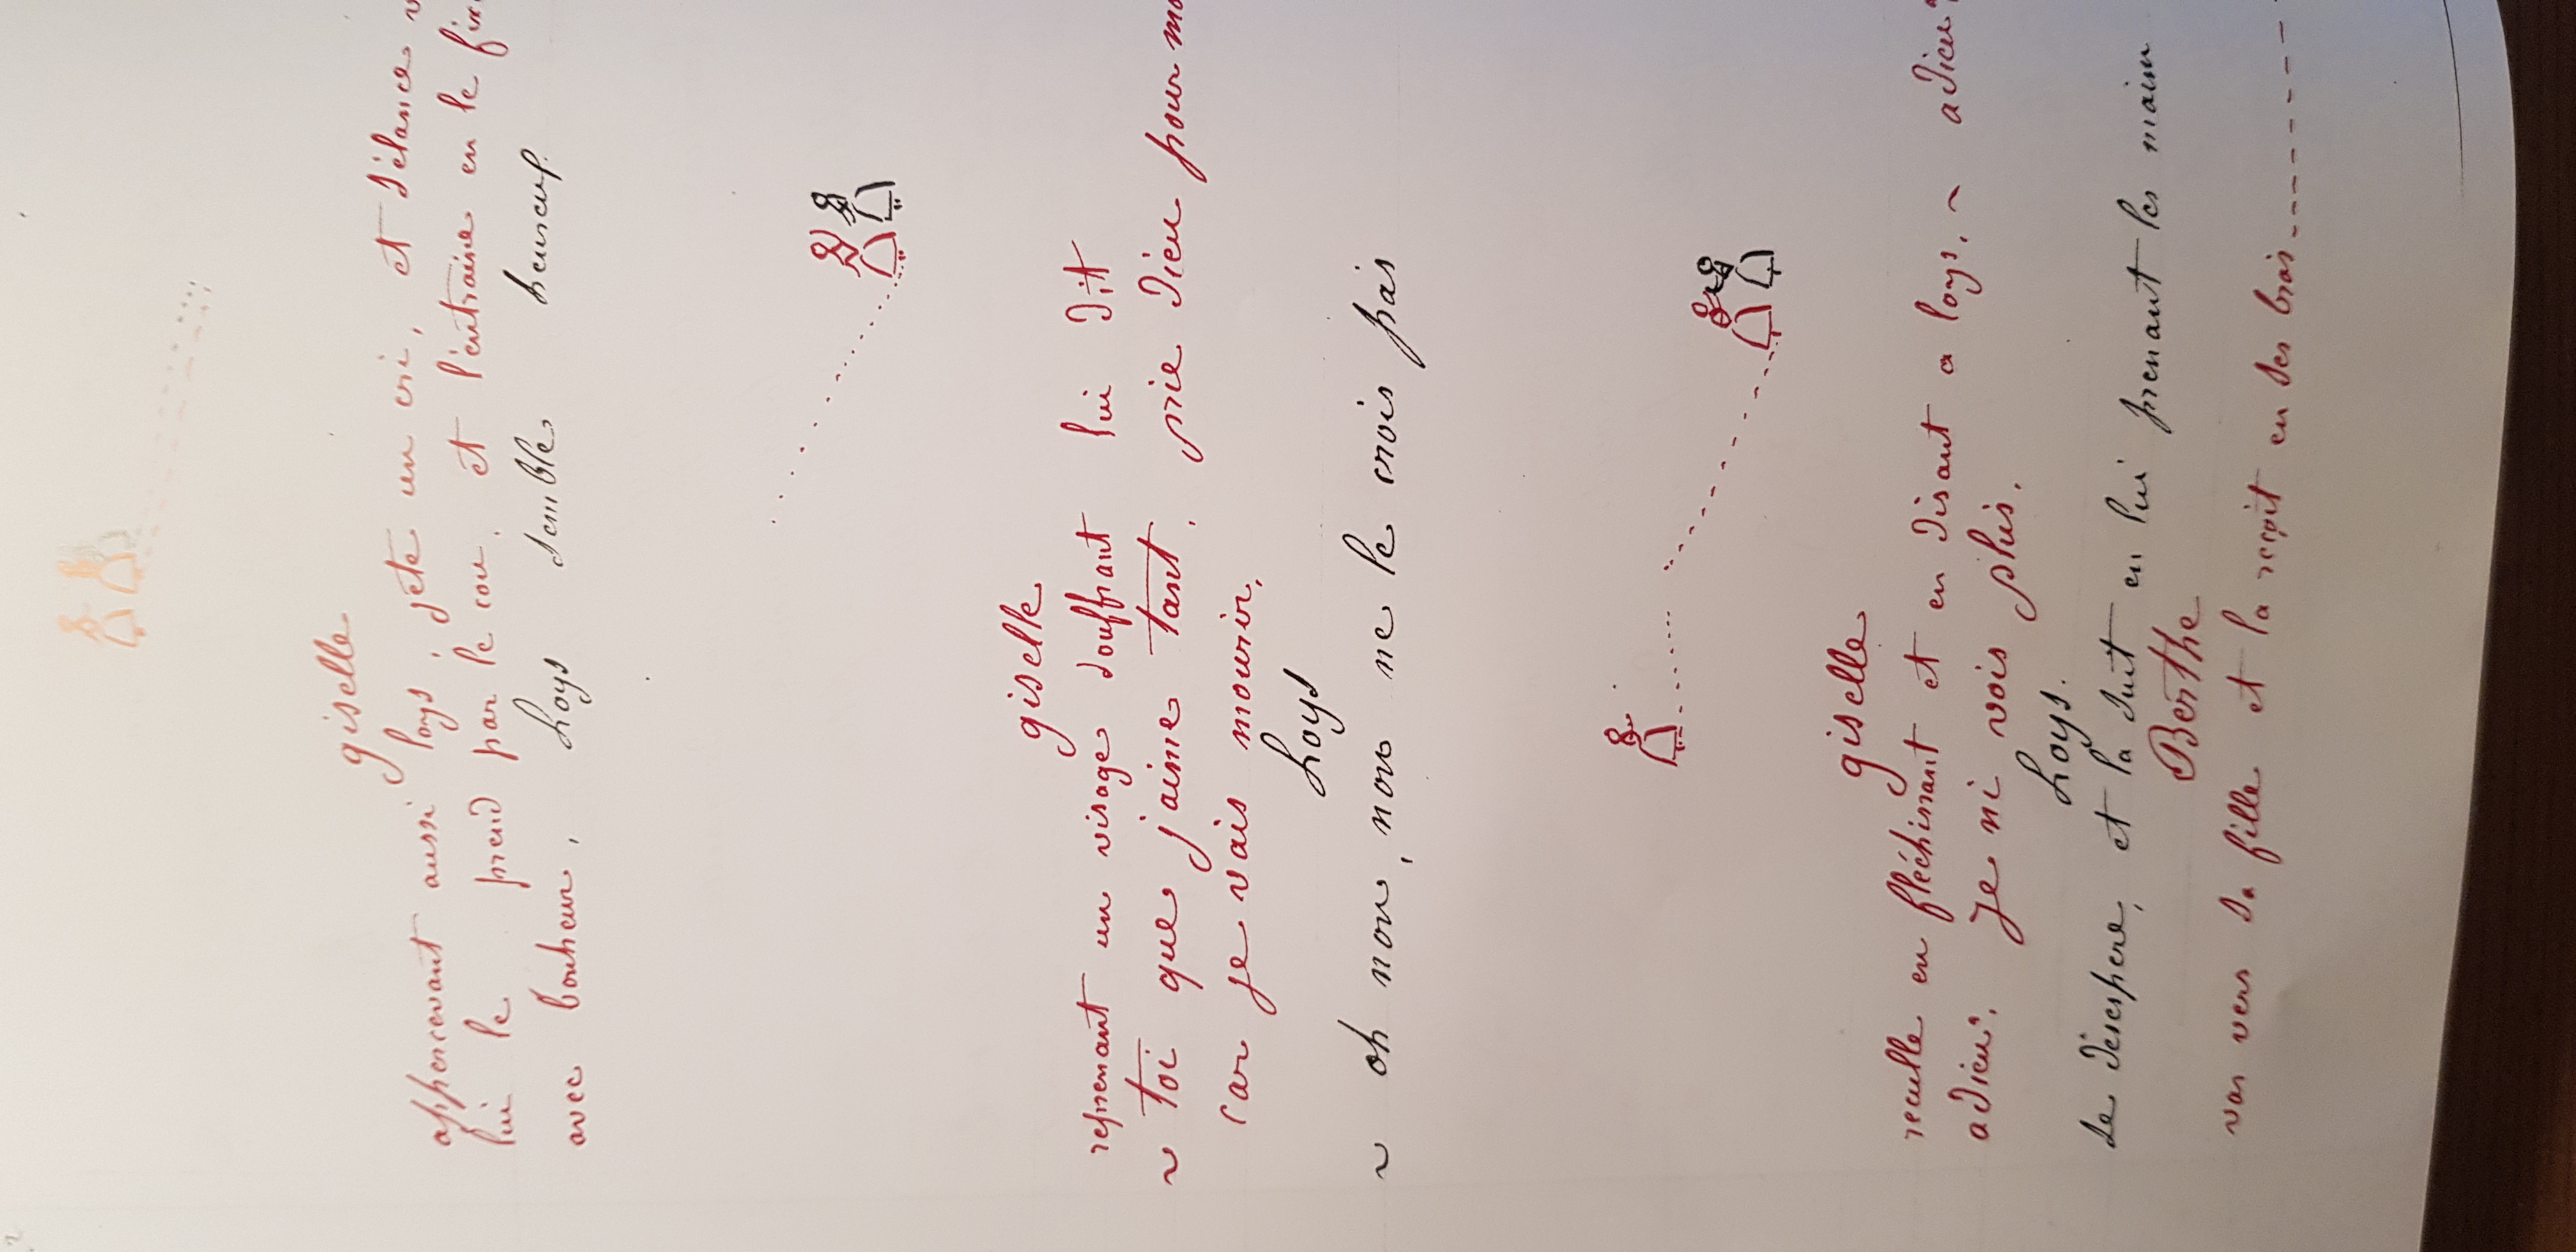 giselle
appercevant aussi loys, jete un cri, et s'élance v
lui le prend par le cou, et l'entraine en le fix
avec bonheur, Loys semble heureux.
giselle
reprenant un visage souffrant lui dit
~ toi que j'aime tant, prie dieu pour mo
car je vais mourir,
Loys
~ oh non, non ne le crois pas
giselle
reculle en fléchissant et en disant a loys, ~ adieu
adieu, je ni vois plus,
Loys.
se désespere, et la suit en lui prenant les mains
Berthe
vas vers sa fille et la reçoit en ses bras